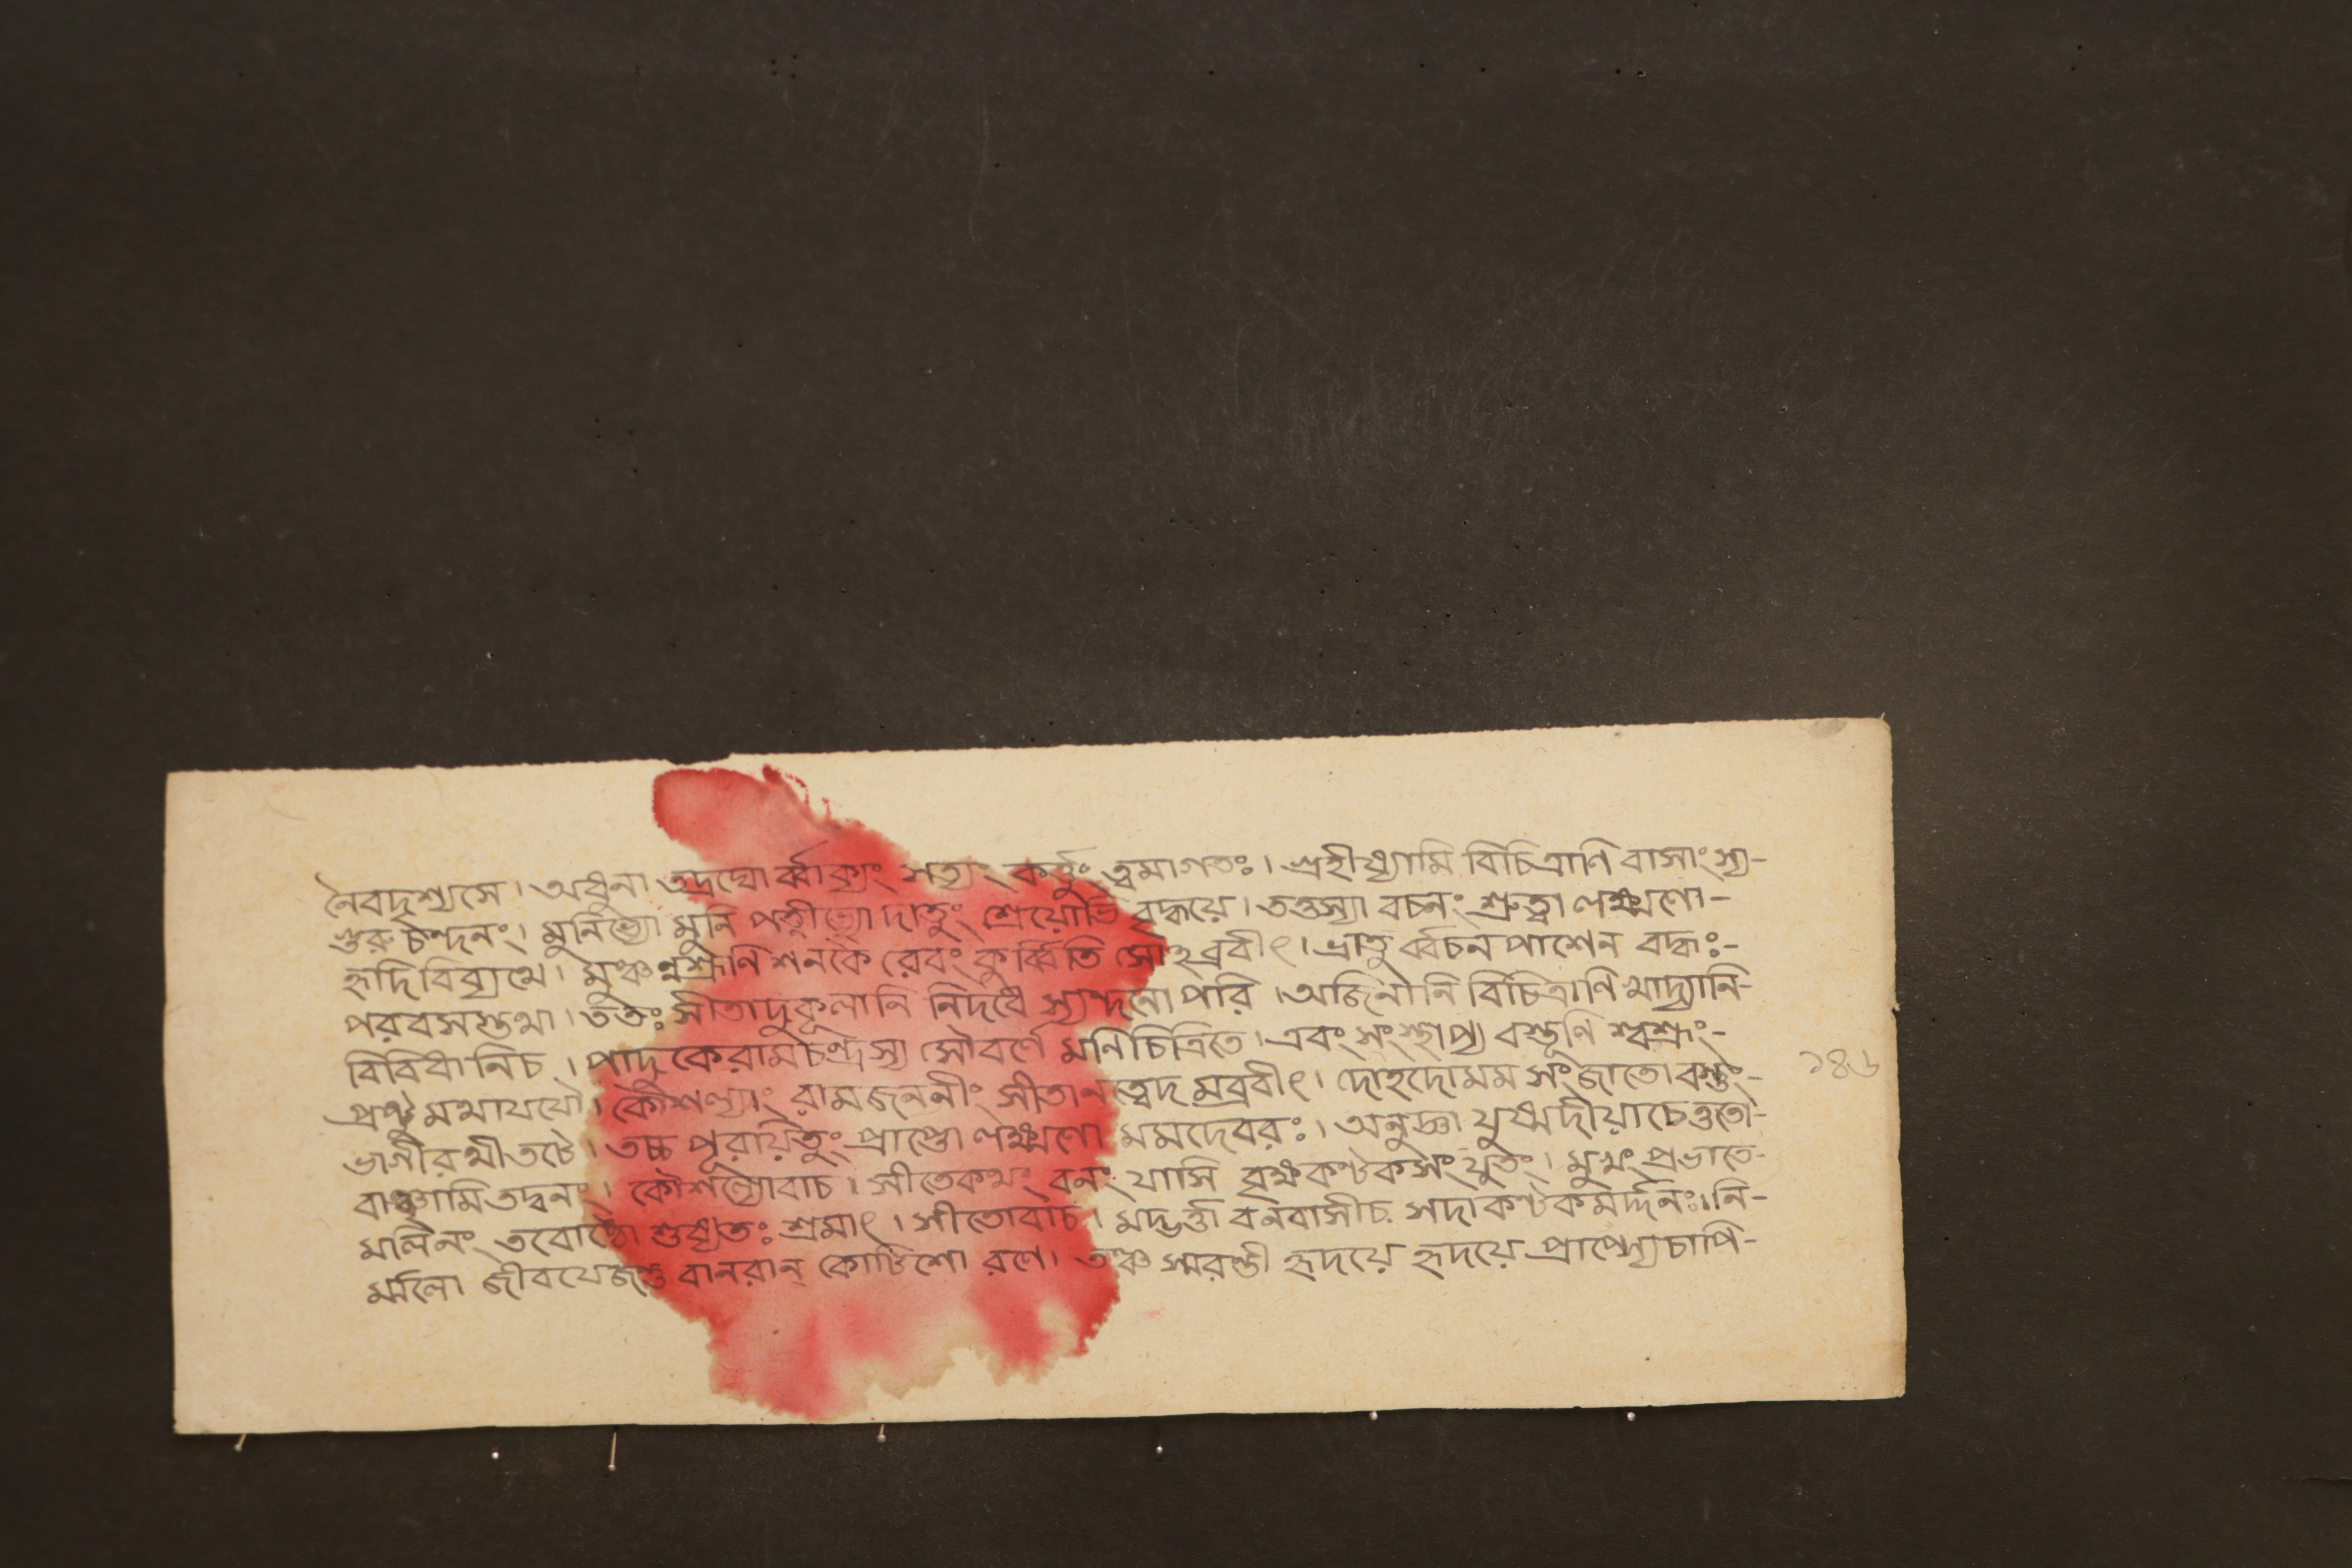 নৈবদৃশ্যসে। অধুনা তদ্রঘোর্ব্বাক্যং সত্যং কর্ত্তুং ত্বমাগতঃ। গ্রহীষ্যামি বিচিত্রাণি বাসাংস্য-
গুরু চন্দনং। মুনিভ্যো মুনি পত্নীভ্যো দাতুং শ্রেয়োভি বৃদ্ধয়ে। তত্তস্যা বচনং শ্রুত্বা লক্ষ্মণো-
হৃদি বিব্যথে। মুঞ্চন্নশ্রূণি শনকৈ রেবং কুর্ব্বিতি সোঽব্রবীৎ। ভ্রাতু র্ব্বচন পাশেন বদ্ধঃ-
পরবসস্তথা। ততঃ সীতাদুকূলানি নিদধে স্যন্দনোপরি। অজিনানি বিচিত্রাণি খাদ্যানি-
বিবিধানিচ। পাদুকেরামচন্দ্রস্য সৌবর্ণে মণিচিত্রিতে। এবং সংস্থাপ্য বস্তূনি শ্বশ্রূং-
প্রষ্টু মথাযযৌ। কৌশল্যাং রামজননীং সীতানত্বেদ মব্রবীৎ। দোহদোমম সংজাতো বস্তুং-
ভাগীরথীতটে। তচ্চ পূরয়িতুং প্রাপ্তো লক্ষ্মণো মমদেবরঃ। অনুজ্ঞা যুষ্মদীয়াচেত্ততো-
বাঞ্ছামিতদ্বনং। কৌশল্যোবাচ। সীতেকথং বনং যাসি বৃক্ষকণ্টকসংযুতং। মুখং প্রভাতে-
মলিনং তবোষ্ঠৌ শুষ্যতঃ শ্রমাৎ। সীতোবাচ। মদ্ভর্ত্তা বনবাসীচ সদাকণ্টকমর্দ্দনঃ। নি-
র্ম্মলো জীবযেজস্তু বানরান্ কোটিশো রণে। তঞ্চ স্মরন্তী হৃদয়ে হৃদয়ে প্রাপ্স্যেচাপি-
১৪৬